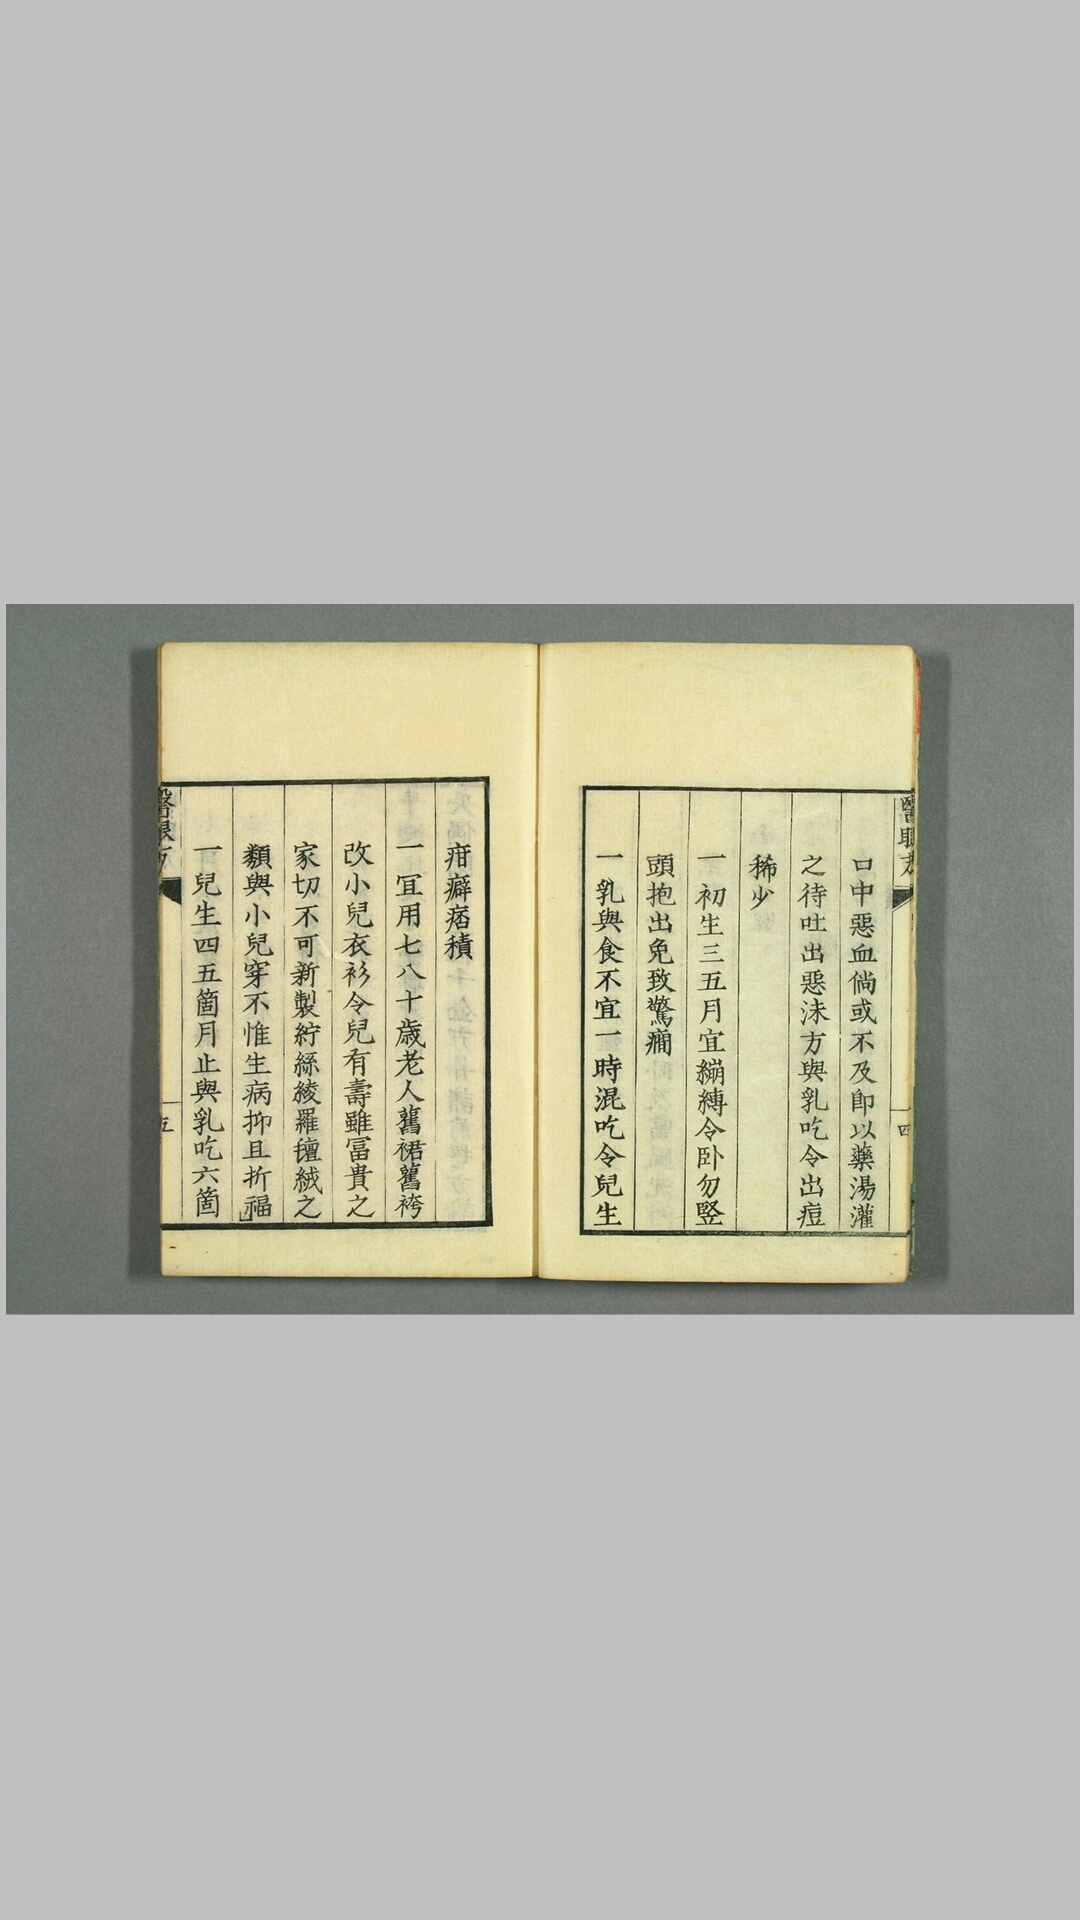 口中惡血倘或不及即以藥湯灌
之待吐出惡沫方與乳吃令出痘
稀少
一初生三五月宜繃縛令卧勿竪
頭抱出免致驚癎
一乳與食不宜一時混吃令兒生
四
疳癖痞積
一冝用七八十歳老人舊裙舊袴
改小兒衣衫令兒有壽雖冨貴之
家切不可新製紵絲綾羅氊絨之
類與小兒穿不惟生病抑且折福
一兒生四五箇月止與乳吃六箇
五